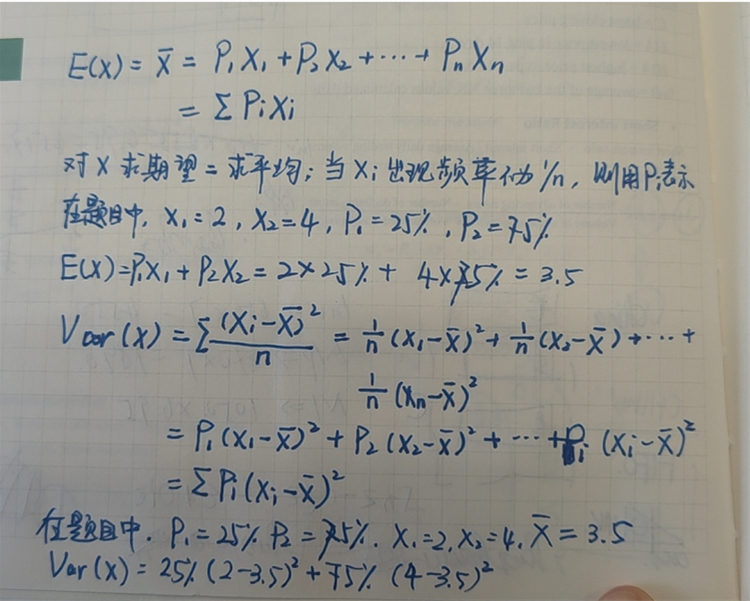 E(X) = X̄ = P₁X₁ + P₂X₂ + ⋯ + PₙXₙ
= ΣPᵢXᵢ
对X求期望=求平均;当Xᵢ出现频率不为1/n,则用Pᵢ表示
在题目中, X₁=2, X₂=4, P₁=25%, P₂=75%
E(X)=P₁X₁+P₂X₂=2×25%+4×75%=3.5
Var(X) = Σ(Xᵢ-X̄)²/n = 1/n(X₁-X̄)²+1/n(X₂-X̄)+⋯+
1/n(Xₙ-X̄)²
= P₁(X₁-X̄)²+P₂(X₂-X̄)²+⋯+Pᵢ(Xᵢ-X̄)²
= ΣPᵢ(Xᵢ-X̄)²
在题目中. P₁=25% P₂=75%. X₁=2, X₂=4, X̄=3.5
Var(X)=25%(2-3.5)²+75%(4-3.5)²